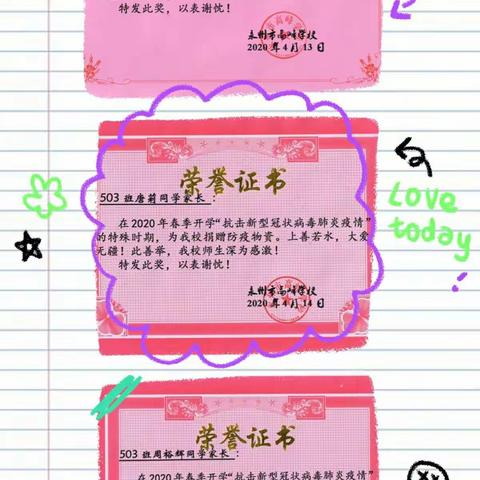 特发此奖，以表谢忱！
永州市高峰学校
2020年4月13日
荣誉证书
503 班唐莉同学家长：
在2020年春季开学“抗击新型冠状病毒肺炎疫情”
的特殊时期，为我校捐赠防疫物资。上善若水，大爱
无疆！此善举，我校师生深为感激！
特发此奖，以表谢忱！
永州市高峰学校
2020年4月14日
Love
today
荣誉证书
503 班周裕辉同学家长：
在2020年春季开学“抗击新型冠状病毒肺炎疫情”